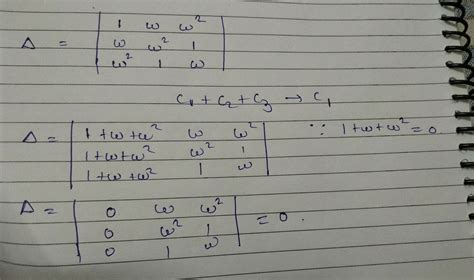 1 ω ω²
Δ = ω ω² 1
ω² 1 ω
C₁ + C₂ + C₃ → C₁
1+ω+ω² ω ω²
Δ = 1+ω+ω² ω² 1 ∵ 1+ω+ω² = 0
1+ω+ω² 1 ω
0 ω ω²
Δ = 0 ω² 1 = 0.
0 1 ω